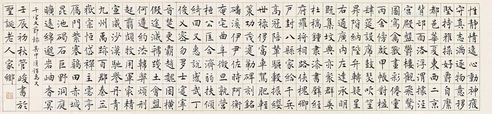 性靜情逸心動神疲
守真志滿逐物意移
堅持雅操好爵自縻
都邑華夏東西二京
背邙面洛浮渭據涇
宮殿盤鬱樓觀飛驚
圖寫禽獸畫彩仙靈
丙舍傍啟甲帳對楹
肆筵設席鼓瑟吹笙
升階納陛弁轉疑星
右通廣內左達承明
既集墳典亦聚群英
杜稿鍾隸漆書壁經
府羅將相路俠槐卿
戶封八縣家給千兵
高冠陪輦驅轂振纓
世祿侈富車駕肥輕
策功茂實勒碑刻銘
磻溪伊尹佐時阿衡
奄宅曲阜微旦孰營
桓公匡合濟弱扶傾
綺回漢惠說感武丁
俊乂密勿多士寔寧
晉楚更霸趙魏困橫
假途滅虢踐土會盟
何遵約法韓弊煩刑
起翦頗牧用軍最精
宣威沙漠馳譽丹青
九州禹跡百郡秦并
嶽宗恆岱禪主雲亭
雁門紫塞雞田赤城
昆池碣石巨野洞庭
曠遠綿邈巖岫杳冥
千字文節錄
壬辰初秋 峻書於
聖誕老人家鄉